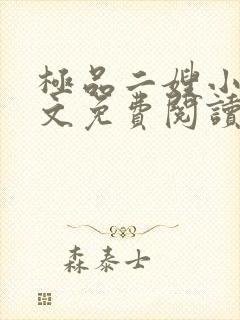 極品二嫂小
文免費閱讀
森泰士